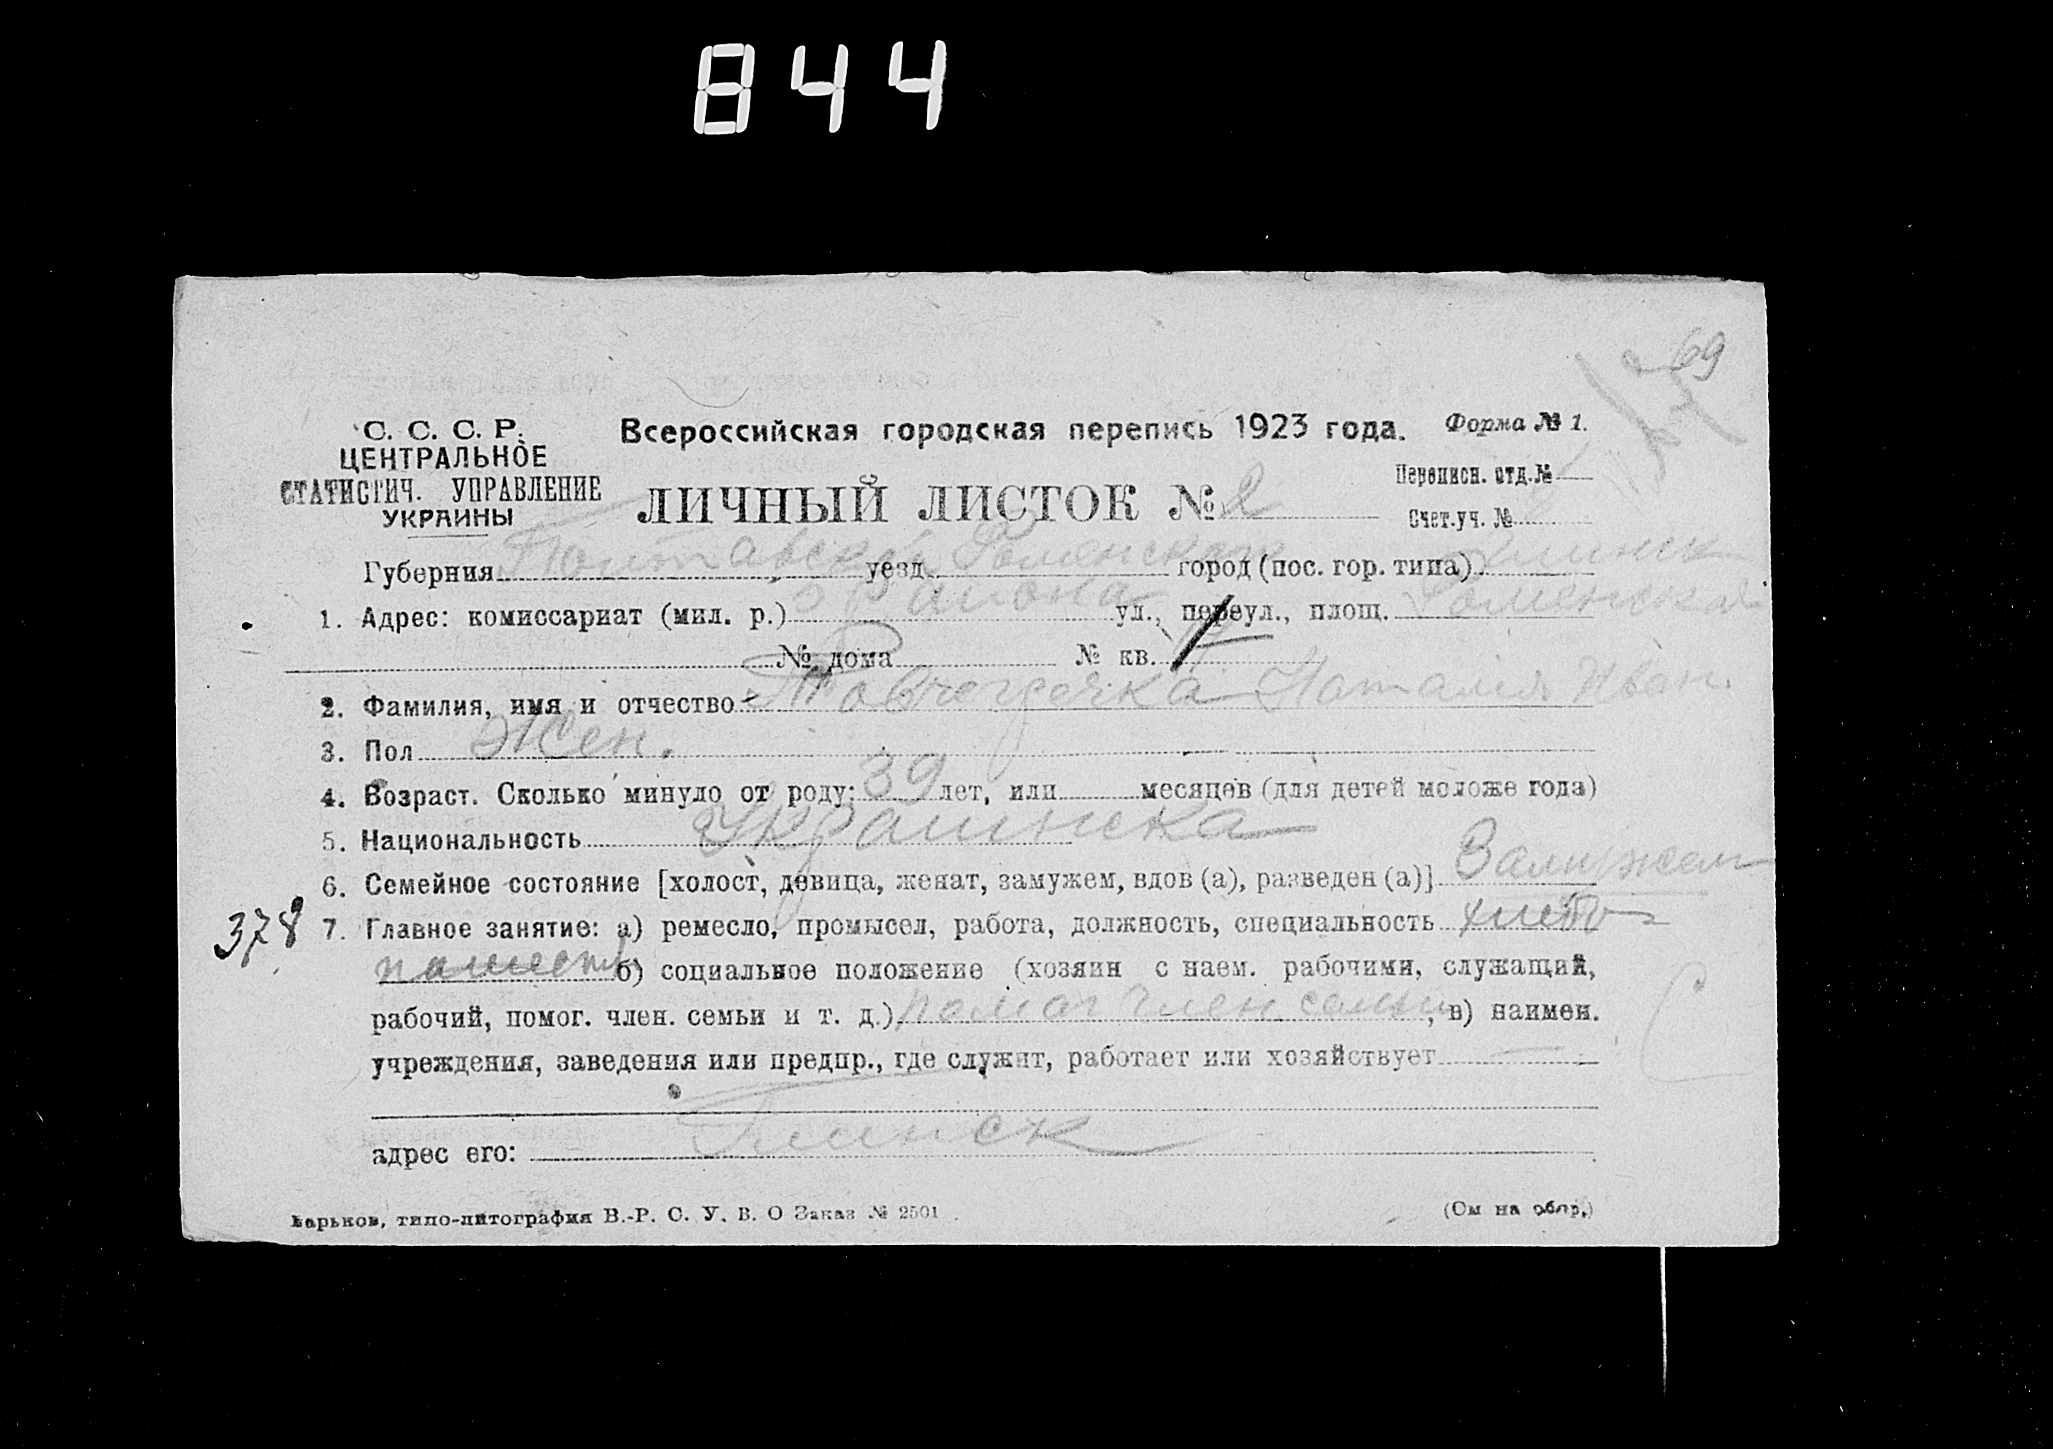 844
69
С. С. С. Р.
ЦЕНТРАЛЬНОЕ
СТАТИСТИЧ. УПРАВЛЕНИЕ
УКРАИНЫ
Всероссийская городская перепись 1923 года.
Форма № 1.
ЛИЧНЫЙ ЛИСТОК № 2
Переписн. отд. №
Счет.уч. №
Губерния Полтавской уезд Роменского город (пос. гор. типа) Глинск
1. Адрес: комиссариат (мил. р.) района ул., переул., площ. Роменская
№ дома № кв.
2. Фамилия, имя и отчество Наталія Иван.
3. Пол Жен.
4. Возраст. Сколько минуло от роду: 39 лет, или месяцев (для детей моложе года)
5. Национальность Украинска
6. Семейное состояние [холост, девица, женат, замужем, вдов (а), разведен (а)] Замужем
378 7. Главное занятие: а) ремесло, промысел, работа, должность, специальность хлебо
б) социальное положение (хозяин с наем. рабочими, служащий,
рабочий, помог. член. семьи и т. д.) помог член семьи, в) наимен.
учреждения, заведения или предпр., где служит, работает или хозяйствует —
адрес его: Глинск
Харьков, типо-литография В.-Р. С. У. В. О Заказ № 2501
(См на обор.)